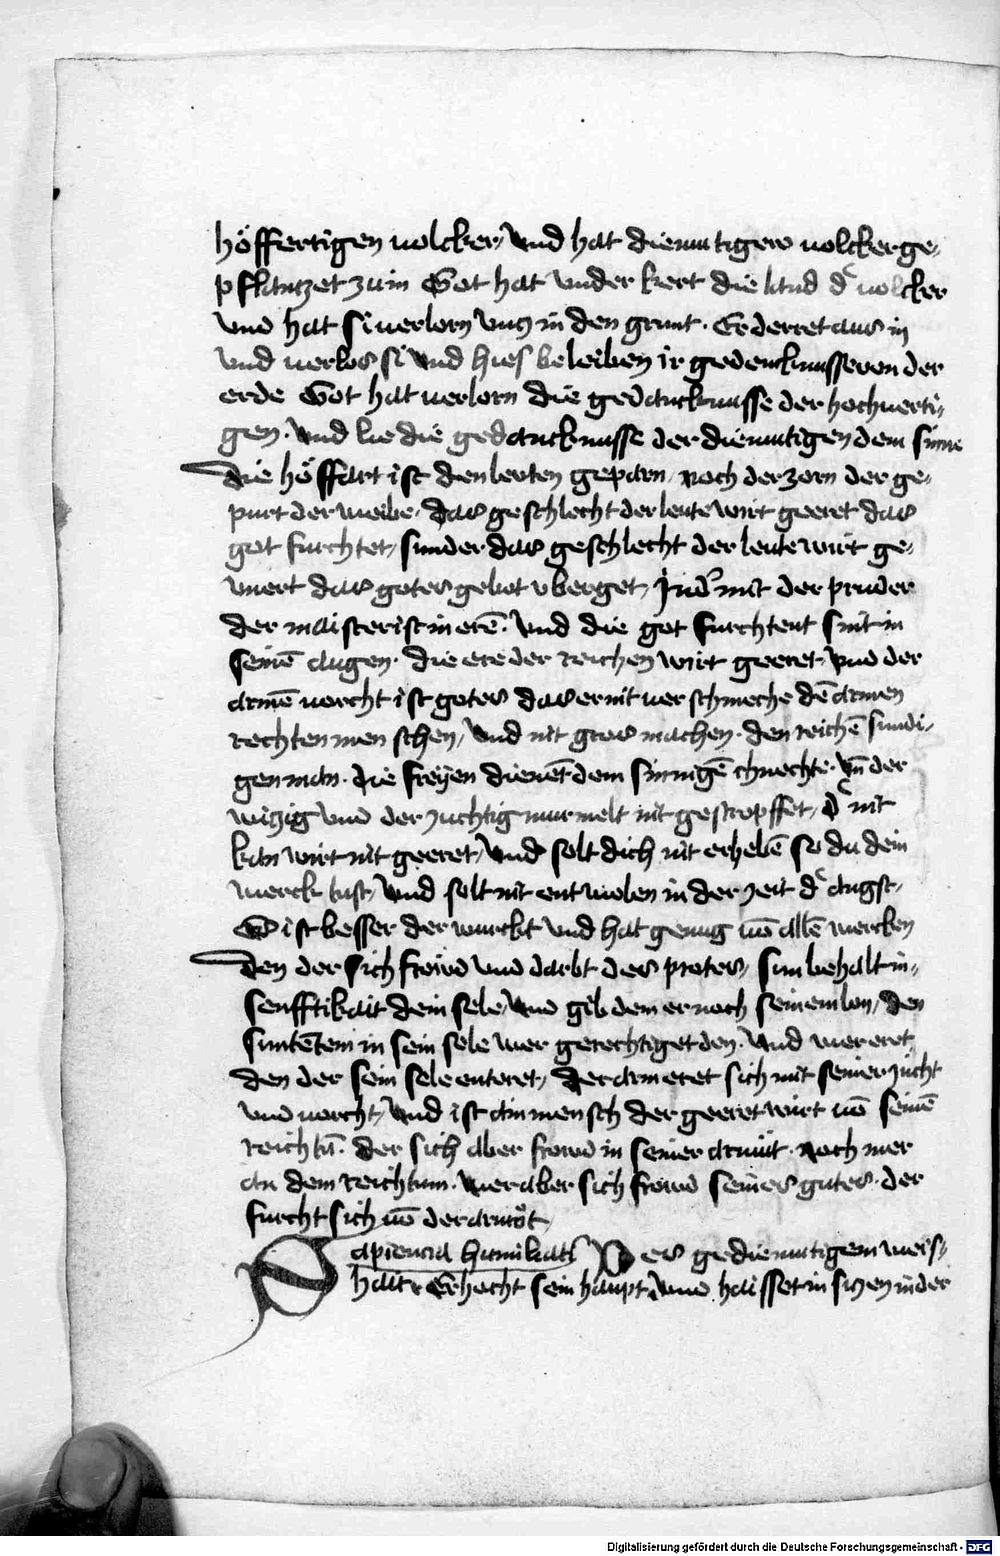 höffertigen uolcker, Vnd hat diemutigew uolcker ge,
pflantzet zu in Got hat vnder kert die land d͛ uolcker
vnd hat si uerlorn vntz in den grunt. Er derret aus in
vnd uerlos si vnd hies beleiben ir gedencknusse von der
erde Got hat uerlorn die gedancknusse der hochuerti,
gen. Vnd lie die gedancknusse der diemutigen dem sinne
Die höffart ist den lewten geparn, noch der zorn der ge,
purt der weibe, Das geschlecht der leute wirt geeret das
got furchtet, sunder das geschlecht der leute wirt ge,
vnert das gotes gebot vberget, In d͛ mit der pruder
der maister ist in erē. Vnd die got furchtent sint in
seinē augen. Die ere der reichen wirt geeret, vnd der
armē uorcht ist gotes das er nit uerschmeche dē armen
rechten menschen, Vnd nit gros machen. den reichē sundi,
gen man. Die freyen dienēt dem sinnigē chnechte. Vn̄ der
witzig vnd der zuchtig murmelt nit gestropffet, d͛ nit
kan wirt nit geeret, Vnd solt dich nit erhebē so du dein
werck tust, Vnd solt nit entwelen in der zeit d͛ angst,
Es ist besser der wurckt vnd hat genug uō allē wercken
Den der sich frowd vnd darbt des protes, Sun behalt in,
senfftikait dein sele, vnd gib dem er noch seinem lon, Den
suntētem in sein sele wer gerechtiget den. Vnd wer eret
den der sein sele enteret, Der arm eret sich mit seiner zucht
vnd uorcht, Vnd ist ain mensch der geeret wirt uō seinē
reichtū. Der sich aber frowd in seiner armut. noch mer
an dem reichtum. Wer aber sich frowd seines gutes. der
furcht sich uō der armůt
Sapiencia humiliati Des gediemutigem weis,
hait Erhocht sein haupt, vnd haisset in sitzen in der
Digitalisierung gefördert durch die Deutsche Forschungsgemeinschaft - DFG